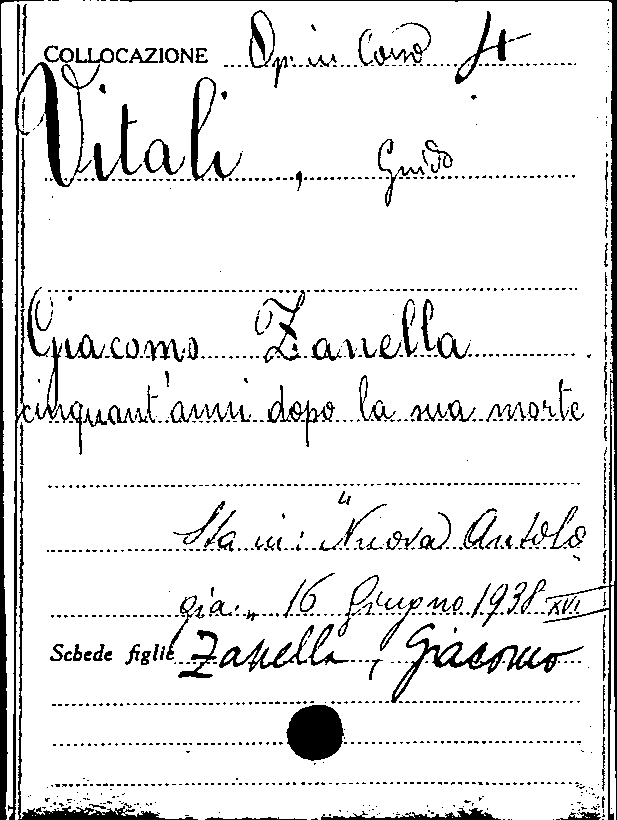 COLLOCAZIONE Op. in Corso 4
Vitali, Guido
Giacomo Zanella
cinquant'anni dopo la sua morte
Sta in: "Nuova Antolo
gia" 16 Giugno 1938 XVI
Schede figlie Zanella, Giacomo